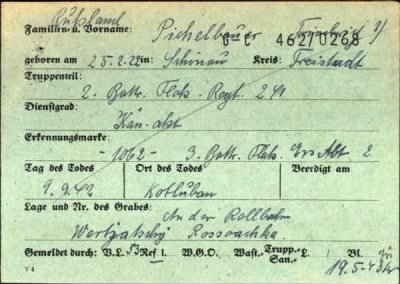 Rußland
Familien- u. Vorname: Pichelbauer Friedrich
G-C 462/0268
geboren am 25.2.22 in: Schönau Kreis: Freistadt
Truppenteil:
2. Battr. Flak. Regt. 241
Dienstgrad:
Kan.
Erkennungsmarke:
-1062- 3. Battr. Flak. Ers Abt 2
Tag des Todes Ort des Todes Beerdigt am
9.9.42 Kotluban
Lage und Nr. des Grabes: An der Rollbahn
Rossoschka
Gemeldet durch: V.L. 53 Ref 1. W.G.O. Wast.- Trupp.- San.- L. / Bl.
V 4 19.5.43